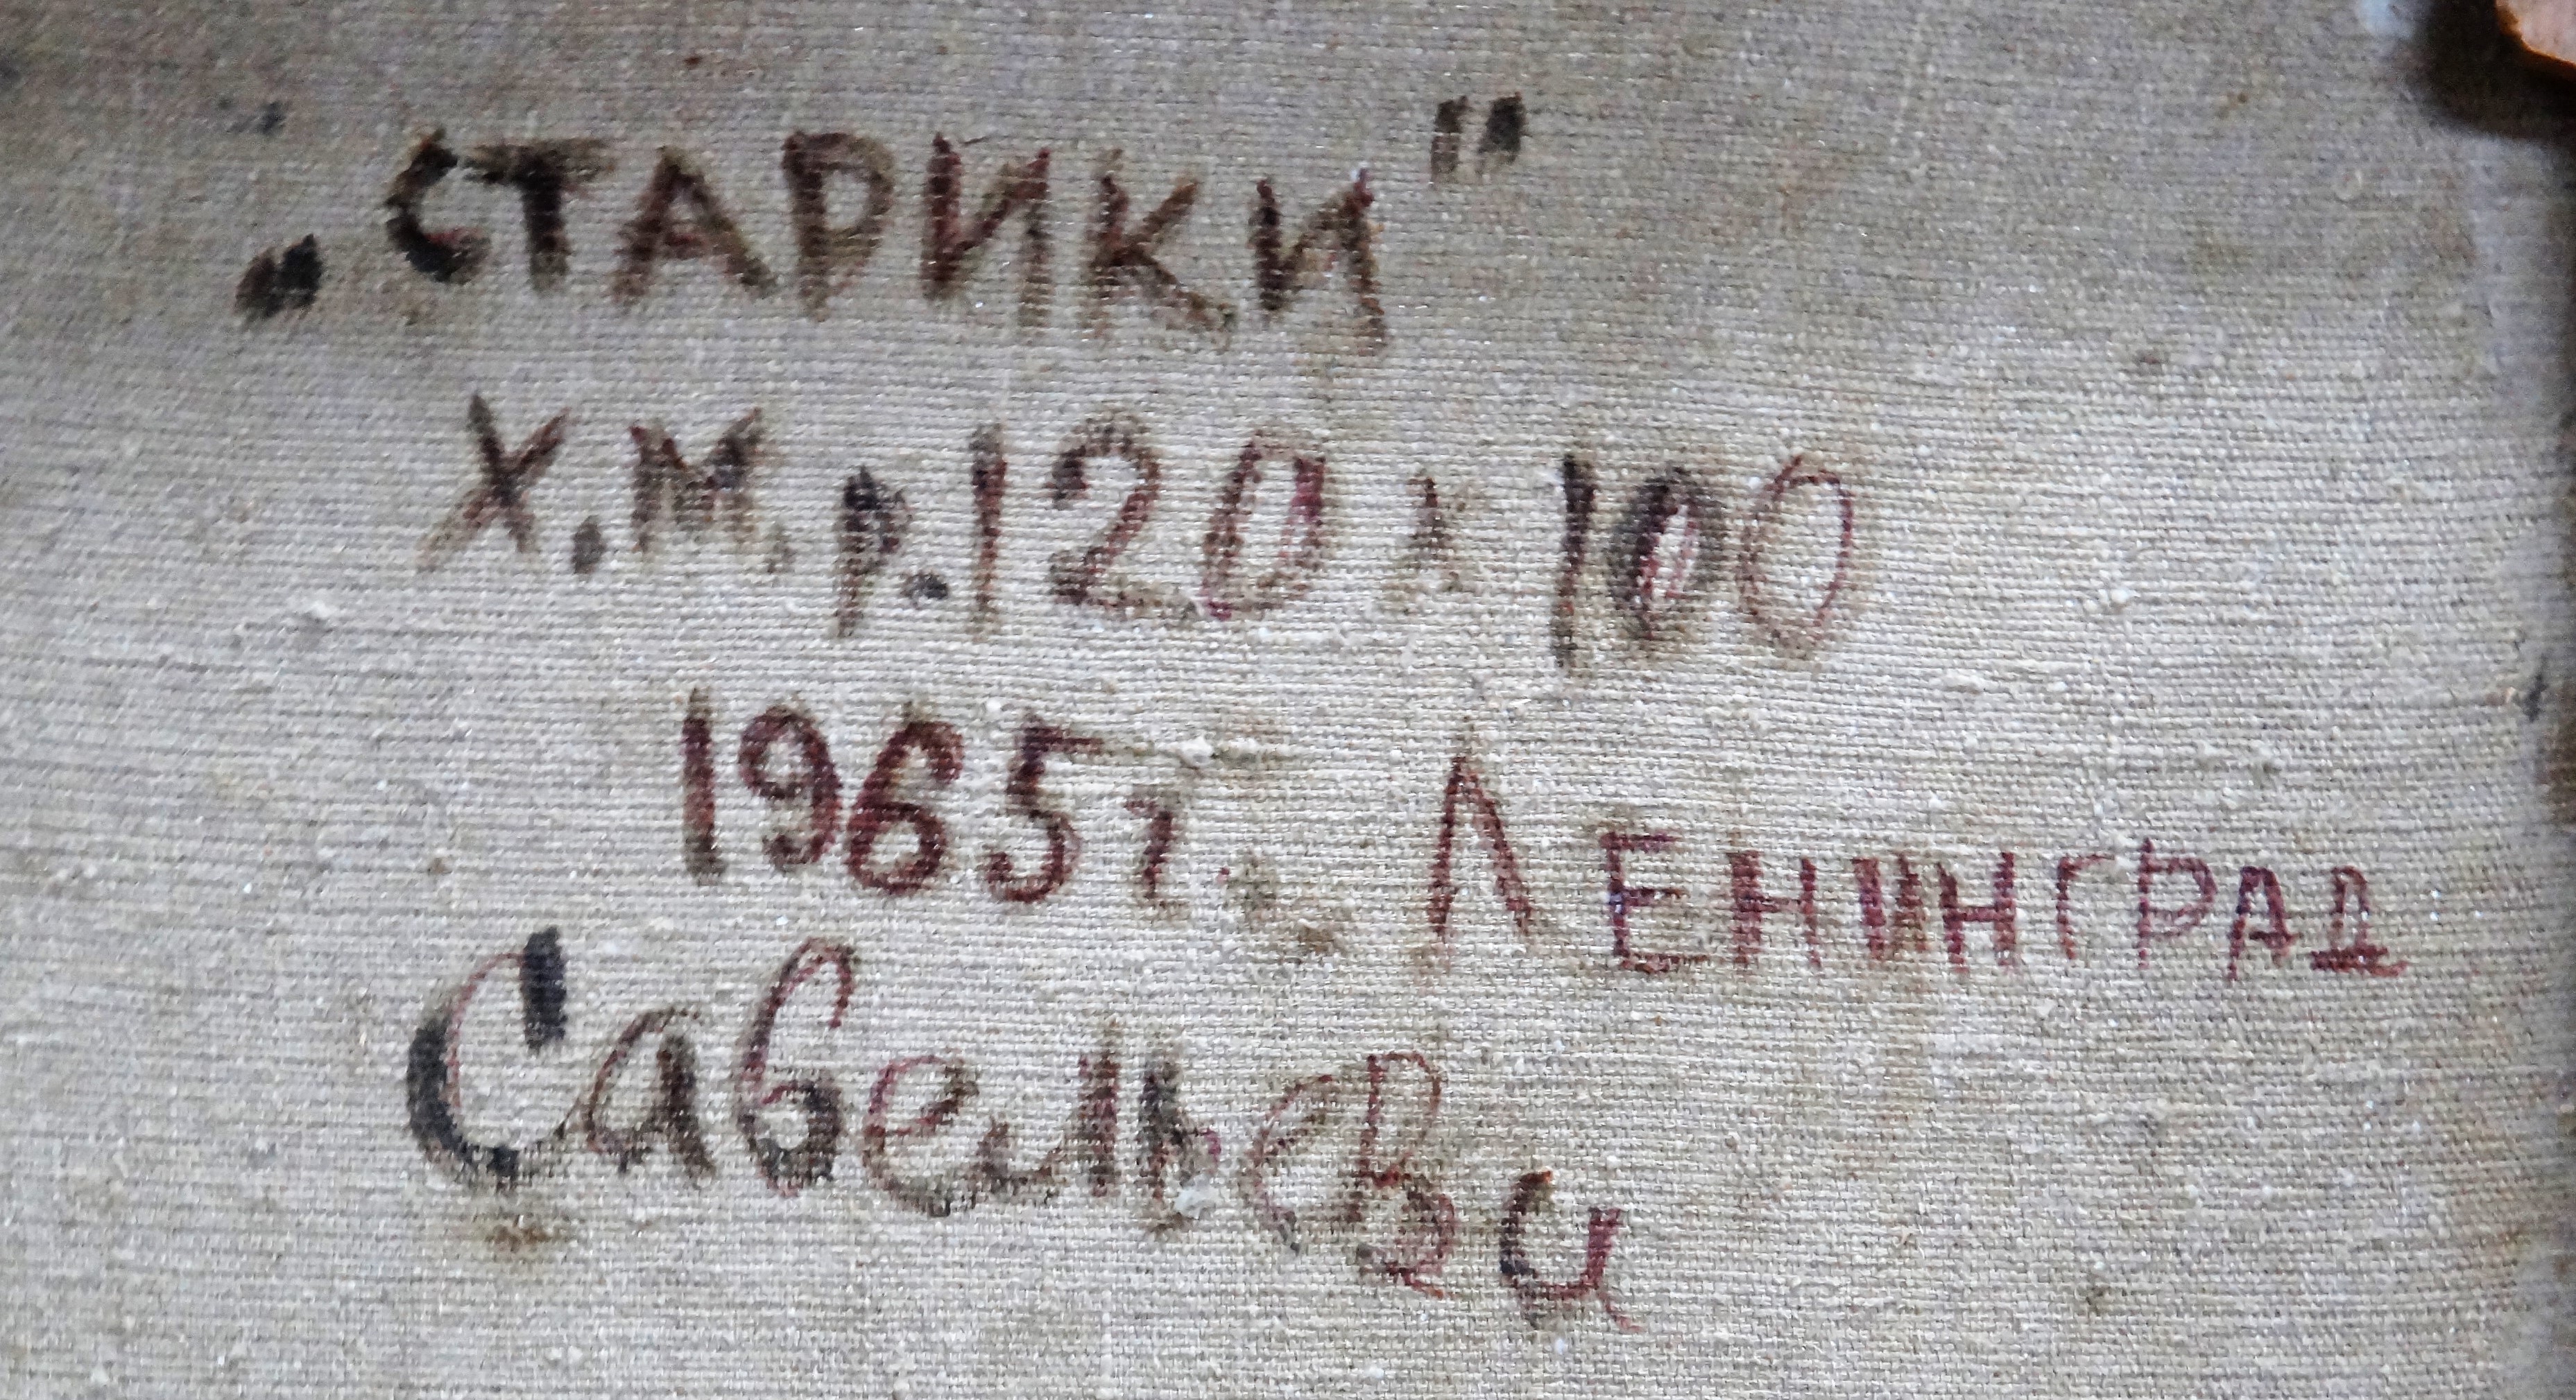 „СТАРИКИ"
Х.М. р.120 х 100
1965 г. ЛЕНИНГРАД
Савельева